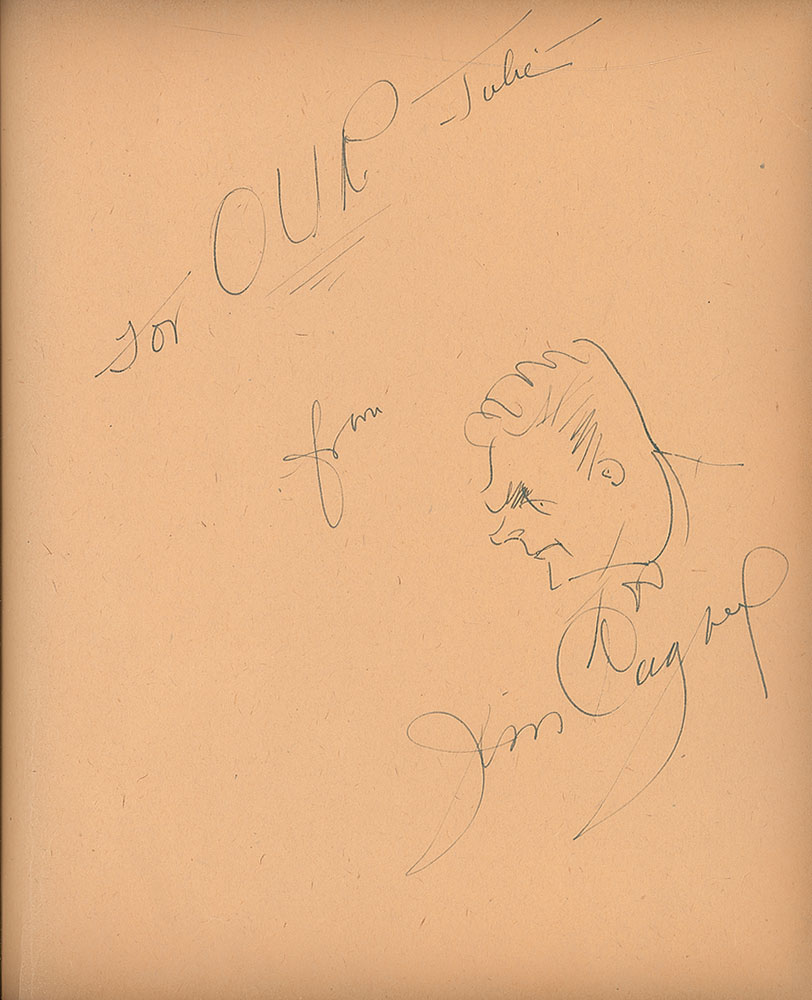 For OUR Julie
from
Jim Cagney